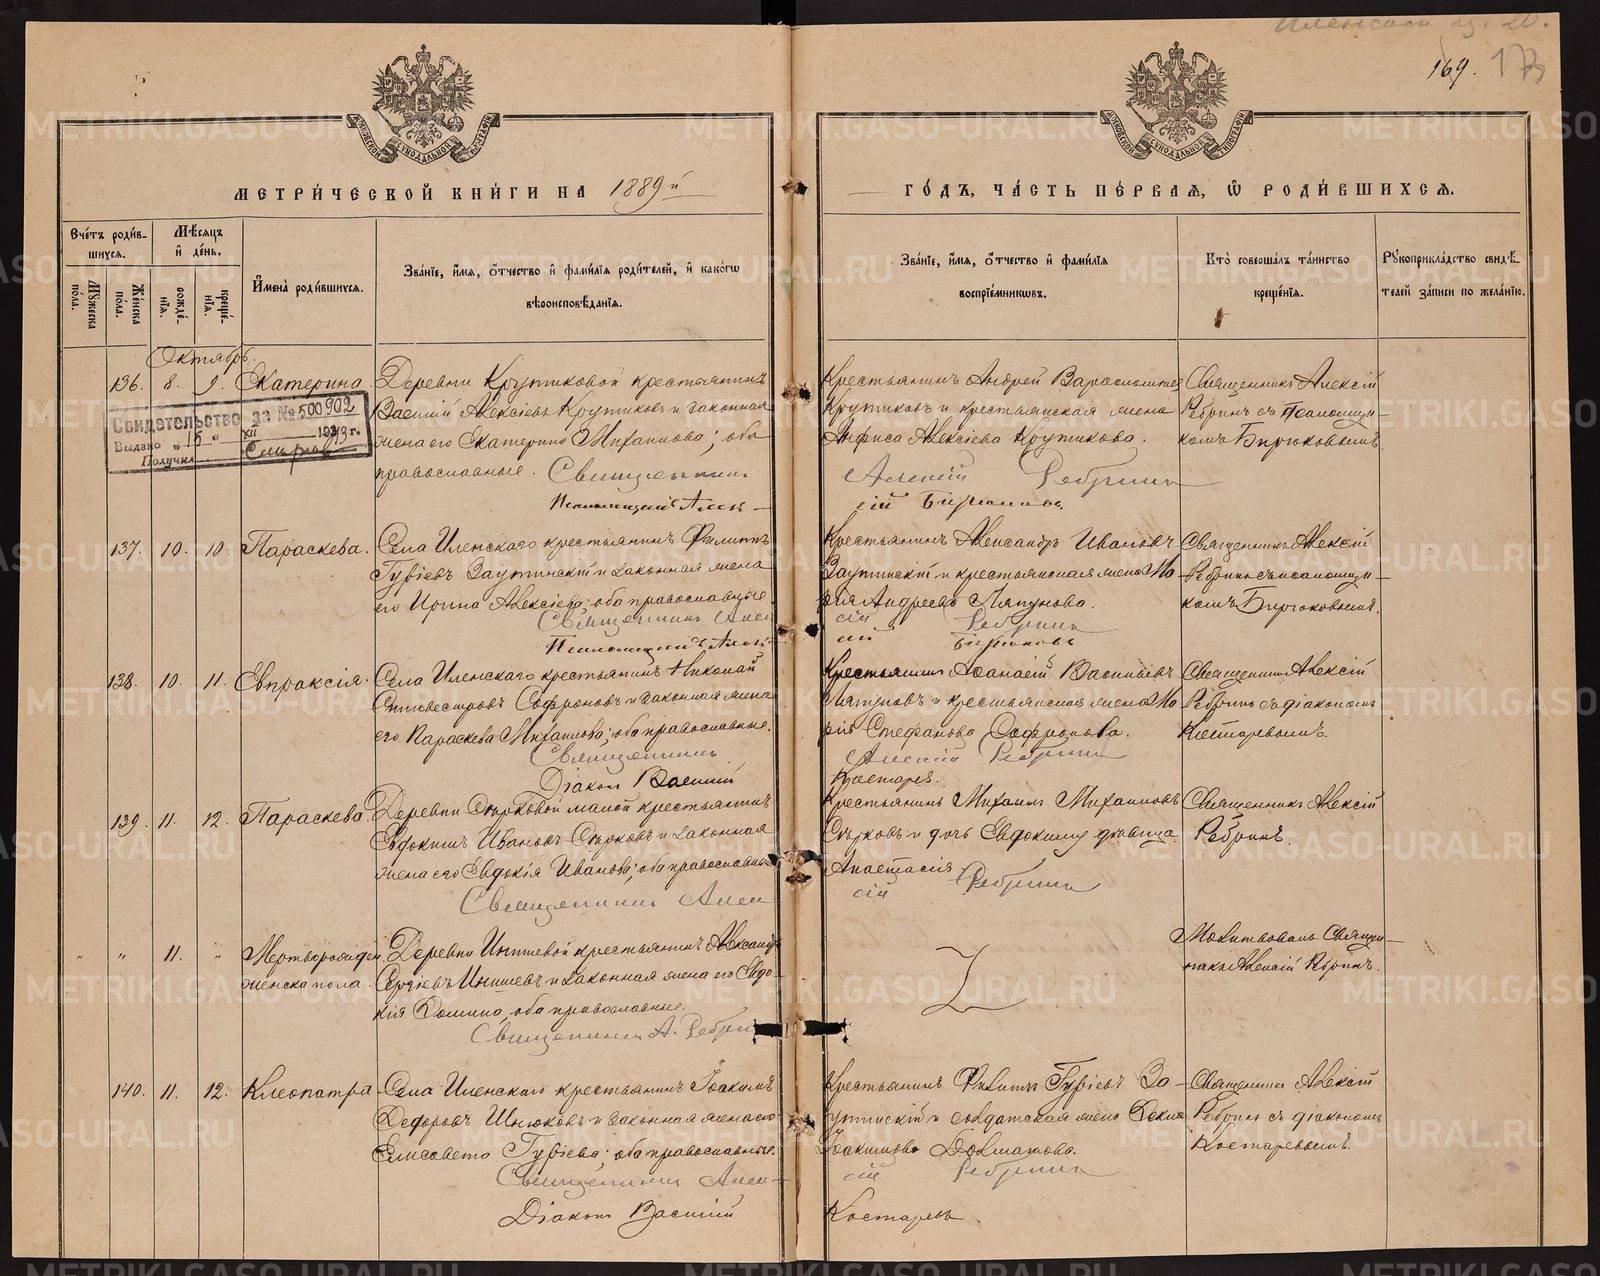 169. 173
МЕТРИ́ЧЕСКОЙ КНИ́ГИ НА 1889й
ГО́ДЪ, ЧА́СТЬ ПЕ́РВАЯ, Ѿ РОДИ́ВШИХСЯ.
Счетъ роди́в-
шихся.
Мѣсяцъ
и де́нь.
Мꙋжеска по́ла.
Же́нска по́ла.
рожде́нїя.
креще́нїя.
И҆мена̀ роди́вшихся.
Зва́нїе, и҆́мя, ѻ҆́тчество и҆ фами́лїя роди́телей, и҆ како́гѡ
вѣроисповѣ́данїя.
Зва́нїе, и҆́мя, ѻ҆́тчество и҆ фами́лїя
воспрїе́мникѡвъ.
Кто̀ соверша́лъ та́инство
креще́нїя.
Рꙋкоприкла́дство свидѣ́-
телей за́писи по жела́нїю.
Октябрь.
136. 8. 9. Екатерина.
Деревни Крутиковой крестьянинъ
Василій Алексіевъ Крутиковъ и законная
жена его Екатерина Михаилова; оба
православные. Священникъ
Псаломщикъ Алек-
Крестьянинъ Андрей
Крутиковъ и крестьянская жена
Анфиса Алексіева Крутикова.
Алексій Ребринъ
сій Бирюковъ.
Священникъ Алексій
Ребринъ съ псаломщи-
комъ Бирюковымъ.
Свидетельство за № 500902
Выдано „15„ XII 1943 г.
Получил
137. 10. 10. Параскева.
Села Иленскаго крестьянинъ Филиппъ
Гурiевъ Заутинскій и законная жена
его Ирина Алексіева; оба православные.
Священникъ Алек
Псаломщикъ Алек
Крестьянинъ Александръ Ивановъ
Заутинскій и крестьянская жена Ма-
рія Андреева Ляпунова.
сій Ребринъ
сій Бирюковъ
Священникъ Алексій
Ребринъ съ псаломщи-
комъ Бирюковымъ.
138. 10. 11. Евпраксія.
Села Иленскаго крестьянинъ Николай
Силивестровъ Софроновъ и законная жена
его Параскева Михаилова; оба православные.
Священникъ
Діаконъ Василій
Крестьянинъ Аѳанасій Васильевъ
Ляпуновъ и крестьянская жена Ма
рія Стефанова Софронова.
Алексій Ребринъ
Костаревъ.
Священникъ Алексій
Ребринъ съ діакономъ
Костаревымъ.
139. 11. 12. Параскева.
Деревни Сырковой малой крестьянинъ
Евдокимъ Ивановъ Сырковъ и законная
жена его Евдокія Иванова; оба православные
Священникъ Алек
Крестьянинъ Михаилъ Михаиловъ
Сырковъ и дочь Евдокима дѣвица
Анастасія.
сій Ребринъ
Священникъ Алексій
Ребринъ.
„ „ 11. „ Мертворожден.
женска пола.
Деревни Инишевой крестьянинъ Александръ
Сергіевъ Инишевъ и законная жена его Евдо-
кія Домнина, оба православные.
Священникъ А. Ребрин
Молитвовалъ Священ-
никъ Алексій Ребринъ.
140. 11. 12. Клеопатра
Села Иленскаго крестьянинъ Іоакимъ
Ѳедоровъ и законная жена его
Елисавета Гурiева; оба православные.
Священникъ Алек-
Діаконъ Василій
Крестьянинъ Филиппъ Гурiевъ За-
утинскій и солдатская жена Ѳекла
Іоакимова Долматова.
сій Ребринъ
Костаревъ
Священникъ Алексій
Ребринъ съ діакономъ
Костаревымъ.
METRIKI.GASO-URAL.RU